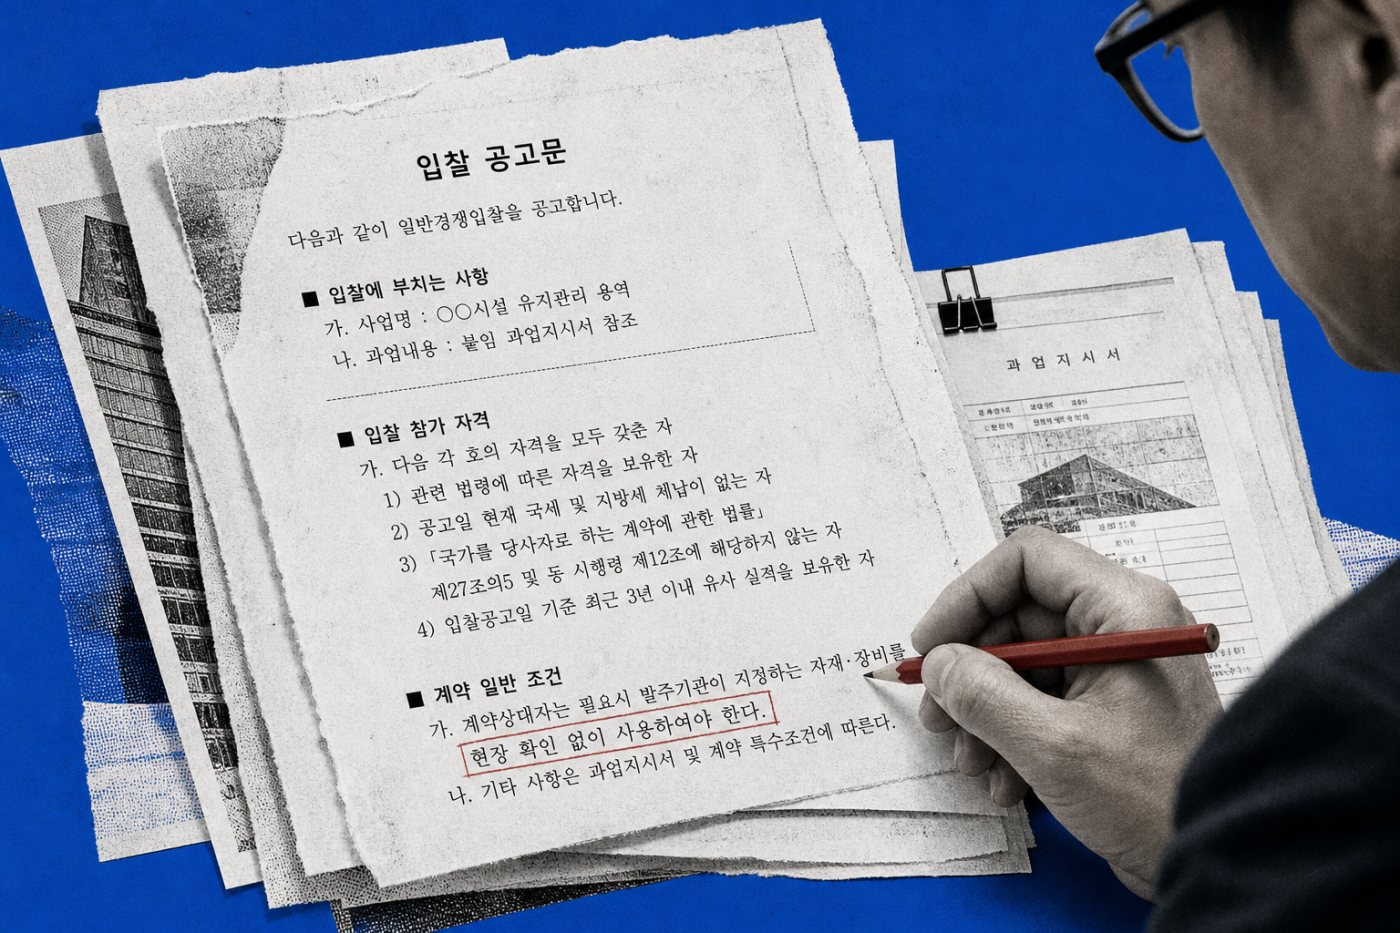 입찰 공고문
다음과 같이 일반경쟁입찰을 공고합니다.
■ 입찰에 부치는 사항
가. 사업명 : ○○시설 유지관리 용역
나. 과업내용 : 붙임 과업지시서 참조
■ 입찰 참가 자격
가. 다음 각 호의 자격을 모두 갖춘 자
1) 관련 법령에 따른 자격을 보유한 자
2) 공고일 현재 국세 및 지방세 체납이 없는 자
3) 「국가를 당사자로 하는 계약에 관한 법률」
제27조의5 및 동 시행령 제12조에 해당하지 않는 자
4) 입찰공고일 기준 최근 3년 이내 유사 실적을 보유한 자
■ 계약 일반 조건
가. 계약상대자는 필요시 발주기관이 지정하는 자재·장비를
현장 확인 없이 사용하여야 한다.
나. 기타 사항은 과업지시서 및 계약 특수조건에 따른다.
과업지시서